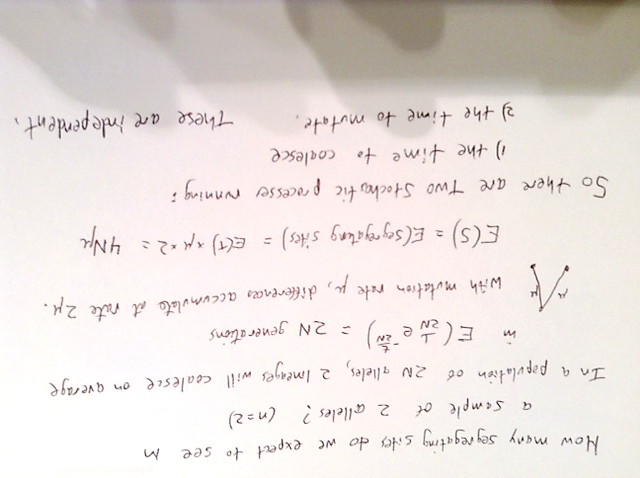 How many segregating sites do we expect to see in
a sample of 2 alleles? (n=2)
In a population of 2N alleles, 2 lineages will coalesce on average
in E(1/2N e^-t/2N) = 2N generations
μ μ with mutation rate μ, differences accumulate at rate 2μ.
E(S) = E(segregating sites) = E(T) × μ × 2 = 4Nμ
So there are two stochastic processes running:
1) the time to coalesce
2) the time to mutate. These are independent.